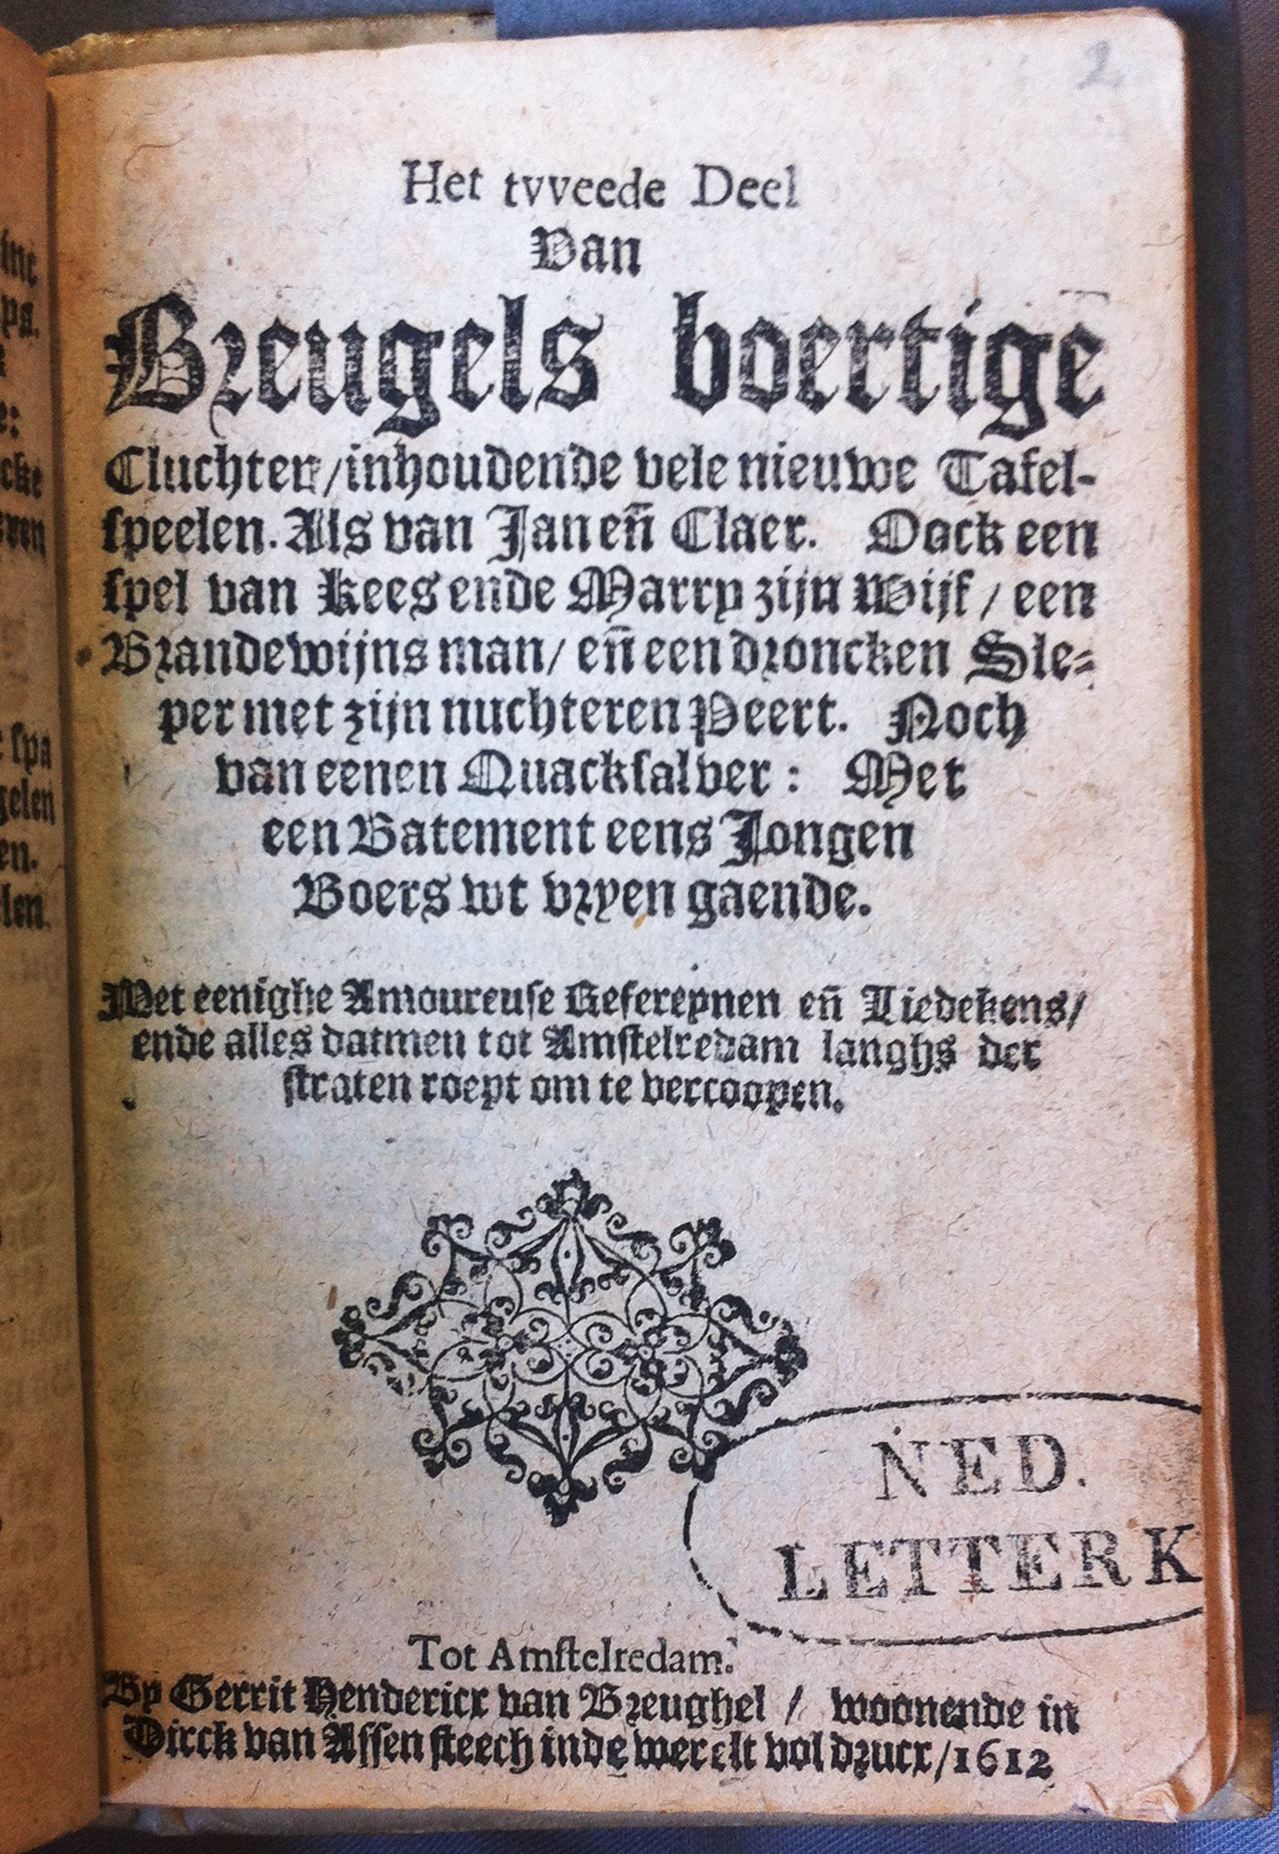 2
Het tvveede Deel
Van
Breugels boertige
Cluchten/inhoudende vele nieuwe Tafel-
speelen. Als van Jan eñ Claer. Oock een
spel van Kees ende Marry zijn wijf / een
Brandewijns man/ eñ een droncken Sle-
per met zijn nuchteren Peert. Noch
van eenen Quacksalver : Met
een Batement eens Jongen
Boers wt vryen gaende.
Met eenighe Amoureuse Refereynen eñ Liedekens/
ende alles datmen tot Amstelredam langhs der
straten roept om te vercoopen.
NED.
LETTERK
Tot Amstelredam.
By Gerrit Hendericx van Breughel / woonende in
Dirck van Assen steech inde werelt vol drucx/1612
ine
ys.
e:
cke
ren
spa
gelen
en.
len.